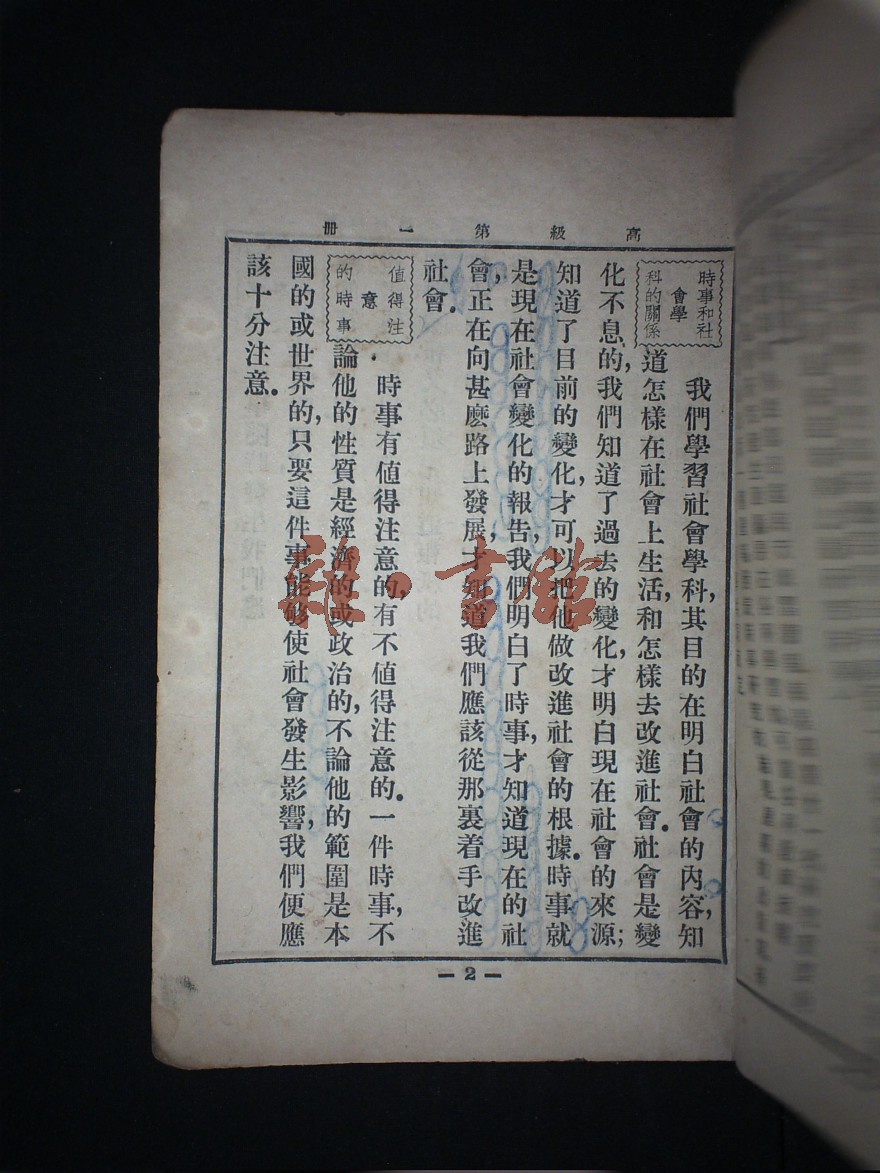 高級第一冊
時事和社
會學
科的關係
我們學習社會學科,其目的在明白社會的內容,知
道怎樣在社會上生活,和怎樣去改進社會.社會是變
化不息的,我們知道了過去的變化,才明白現在社會的來源;
知道了目前的變化,才可以把他做改進社會的根據.時事就
是現在社會變化的報告,我們明白了時事,才知道現在的社
會,正在向甚麽路上發展,才知道我們應該從那裏着手改進
社會.
值得注
意
的時事
時事有値得注意的,有不値得注意的.一件時事,不
論他的性質是經濟的或政治的,不論他的範圍是本
國的或世界的,只要這件事能够使社會發生影響,我們便應
該十分注意.
— 2 —
雜·書館